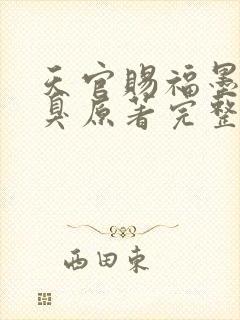 天官賜福墨
臭原著完整
西田東